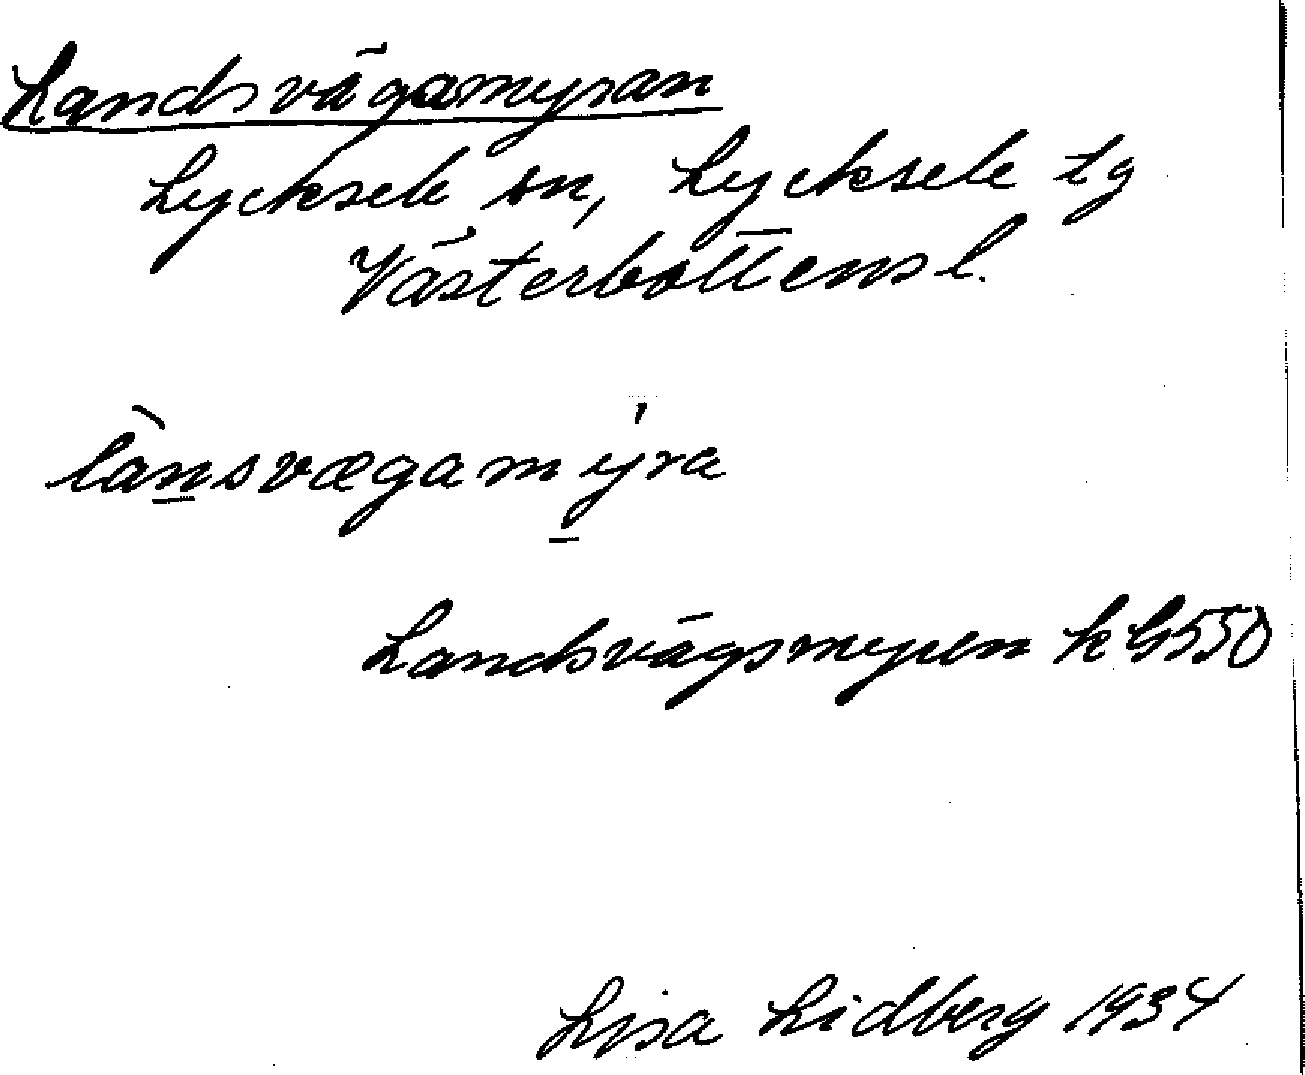 Landsvägamyran
Lycksele sn, Lycksele tg
Västerbottens l.
lànsvægamýra
Landsvägsmyren k G550
Lisa Lidberg 1934